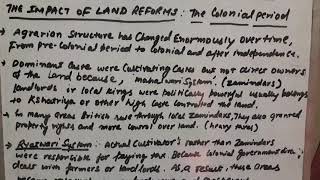 THE IMPACT OF LAND REFORMS : The Colonial period
→ Agrarian Structure has Changed Enormously over time,
From pre-Colonial period to Colonial and after independence.
→ Dominant Caste were Cultivating Castes but not direct owners
of the Land because, System: (zamindars)
landlords or local kings were politically powerful usually belongs
to Kshatriya or other high caste controlled the land.
→ In many areas British rule through local zamindars, They also granted
property rights and more control over land. (heavy taxes)
→ Ryotwari System :- Actual Cultivators rather than Zamindars
were responsible for paying tax Because Colonial government
dealt with farmers or landlords. As, a result, these areas